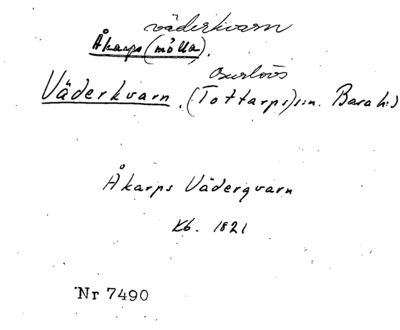 väderkvarn
Åkarps (mölla).
Burlövs
Väderkvarn. (Tottarps) sn. Bara hd
Åkarps Väderqvarn
Kb. 1821
Nr 7490